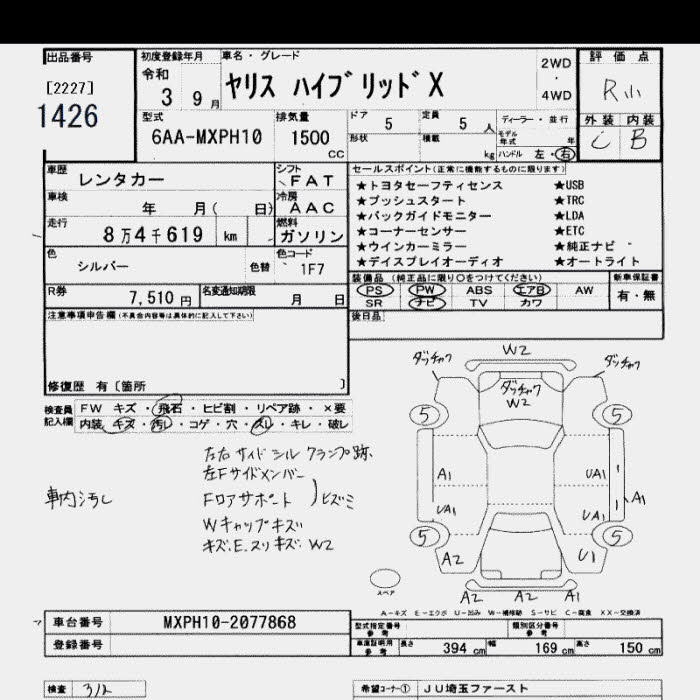 出品番号
[2227]
1426
初度登録年月
令和
3 9月
車名・グレード
ヤリス ハイブリッドX
2WD
・
4WD
評価点
R小
外装 内装
C B
型式
6AA-MXPH10
排気量
1500
CC
ドア
5
定員
5人
形状
積載
kg
ディーラー・並行
モデル年式 年
ハンドル 左・右
車歴
レンタカー
シフト
FAT
車検
年 月( 日)
冷房
AAC
走行
8万4千619 km
燃料
ガソリン
色
シルバー
色替
色コード
1F7
R券
7,510円
名変通知期限
月 日
セールスポイント(正常に機能するものに限ります)
★トヨタセーフティセンス ★USB
★プッシュスタート ★TRC
★バックガイドモニター ★LDA
★コーナーセンサー ★ETC
★ウインカーミラー ★純正ナビ
★デイスプレイオーディオ ★オートライト
装備品 (純正品に限り〇をつけてください)
新車保証書
PS PW ABS エアB AW
有・無
SR ナビ TV カワ
後日品
注意事項申告欄(不具合内容等は具体的に記入して下さい)
修復歴 有〔箇所 〕
検査員
記入欄
FW キズ・飛石・ヒビ割・リペア跡・×要
内装 キズ・汚レ・コゲ・穴・スレ・キレ・破レ
左右サイドシル クランプ跡
左Fサイドメンバー
Fロアサポート )ヒズミ
Wキャップキズ
キズ.E.スリキズ W2
車内汚し
W2
ダッチャク
ダッチャク
ダッチャク
W2
5
5
A1
UA1
UA1
UA1
A1
5
5
A2
U1
A2
A2
A1
スペア
A-キズ E-エクボ U-凹み W-補修跡 S-サビ C-腐食 XX-交換済
車台番号
MXPH10-2077868
登録番号
型式指定番号
参考
類別区分番号
参考
車庫証明用
参考
長さ 394 cm
幅 169 cm
高さ 150 cm
検査
3/2
希望コーナー①
JU埼玉ファースト